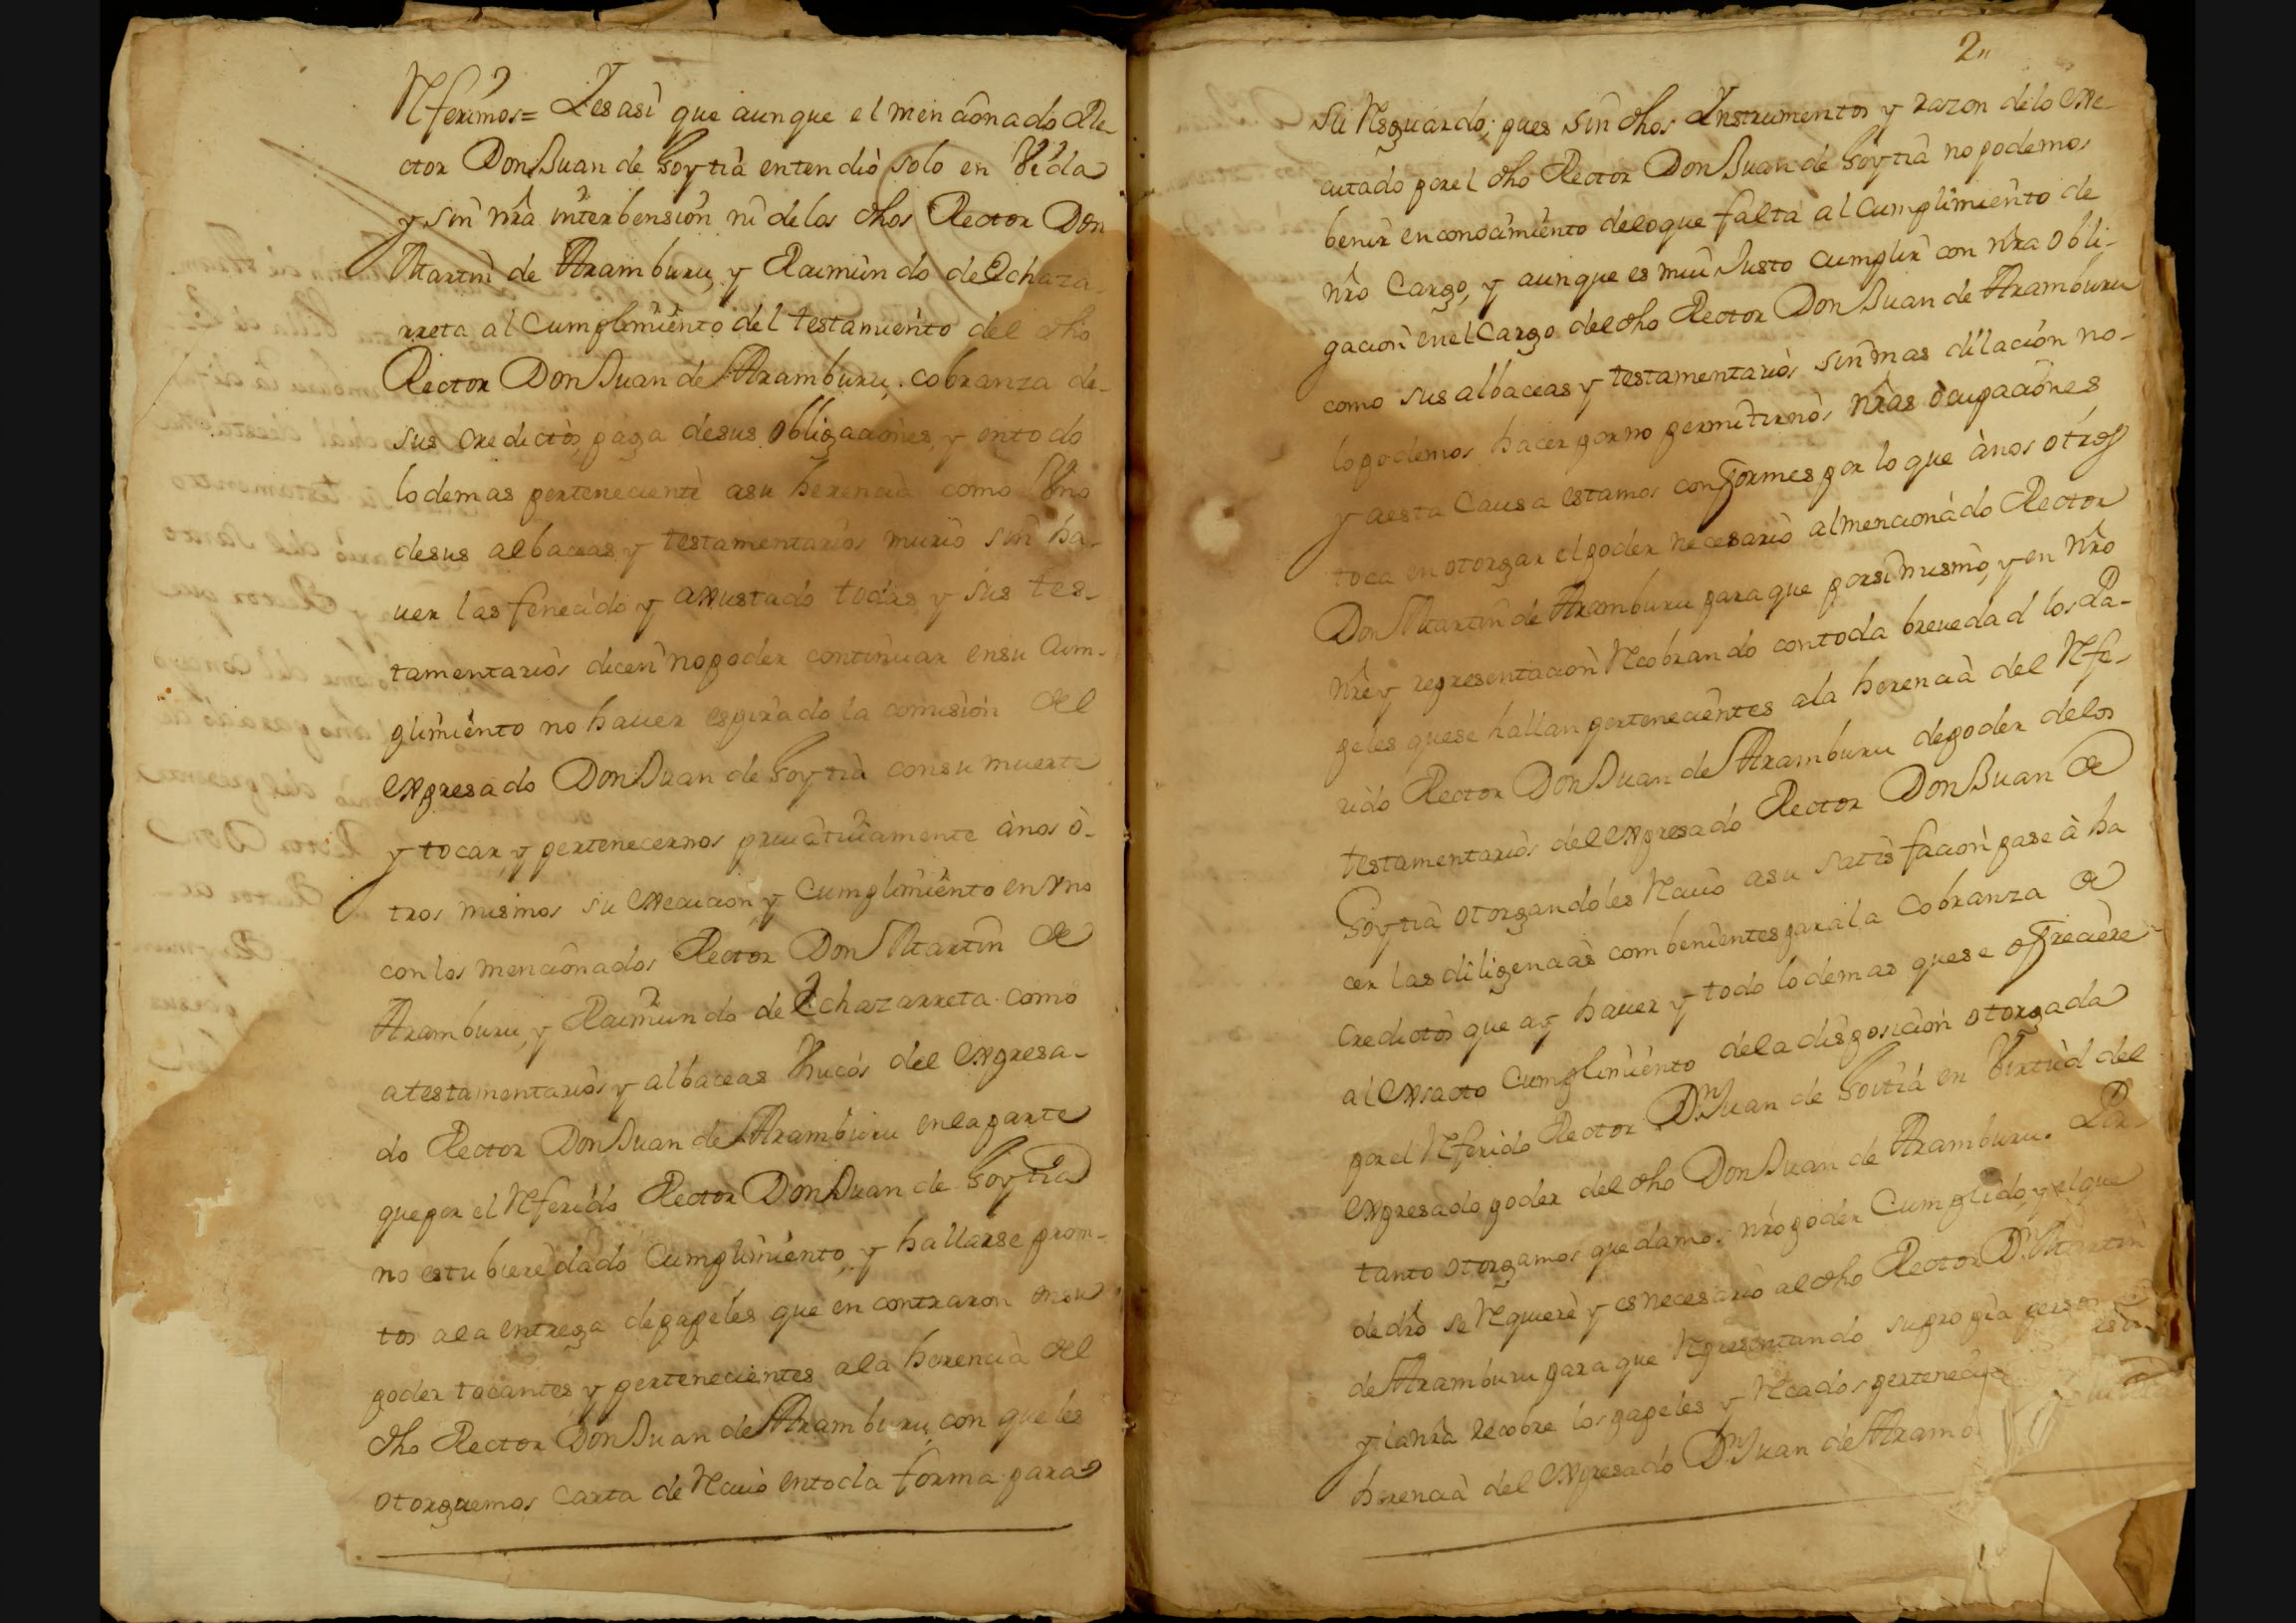 Referimos= Y es asi que aunque el mencionado Re-
ctor Don Juan de Goytia entendio solo en Vida
y sin nra interbension ni de los dhos Rector Don
Martin de Aramburu, y Raimundo de Echaza-
rreta al Cumplimiento del testamiento del dho
Rector Don Juan de Aramburu, cobranza de-
sus credictos, paga de sus obligaciones, y en todo
lo demas perteneciente a su herencia como Vno
de sus albaceas y testamentarios murio sin ha-
uer las fenecido y axustado todas, y sus tes-
tamentarios dicen no poder continuar en su Cum-
plimiento no hauer espirado la comision del
expresado Don Juan de Goytia con su muerte
y tocar, y pertenecernos priuatiuamente à nos ò-
tros mismos su execucion, y Cumplimiento en Vno
con los mencionados Rector Don Martin de
Aramburu, y Raimundo de Echazarreta como
a testamentarios y albaceas Vnicos del expresa-
do Rector Don Juan de Aramburu en la parte
que por el Referido Rector Don Juan de Goytia
no estubiere dado Cumplimiento, y hallarse prom-
tos a la entrega de papeles que encontraron en su
poder tocantes, y pertenecientes a la herencia del
dho Rector Don Juan de Aramburu, con que les
otorguemos carta de Reciuo en toda forma para
2,,
su Resguardo; pues sin dhos Instrumentos y razon de lo exe-
cutado por el dho Rector Don Juan de Goytia no podemos
benir en conocimiento de lo que falta al Cumplimiento de
nro Cargo, y aunque es mui Justo cumplir con nra obli-
gacion en el Cargo del dho Rector Don Juan de Aramburu
como sus albaceas y testamentarios sin mas dilacion no-
lo podemos hacer por no permitirnos nras ocupaciones
y a esta Causa estamos conformes por lo que à nos otros
toca en otorgar el poder necesario al mencionado Rector
Don Martin de Aramburu para que por si mismo, y en nro
nre y representacion Recobrando con toda breuedad los Pa-
peles que se hallan pertenecientes a la herencia del Refe-
rido Rector Don Juan de Aramburu de poder de los
testamentarios del expresado Rector Don Juan de
Goytia otorgandoles Reciuo a su satisfacion pase à ha
cer las diligencias combenientes para la Cobranza de
Credictos que ay hauer y todo lo demas que se ofreciere
al exsacto Cumplimiento de la disposicion otorgada
por el Referido Rector Dn Juan de Goitia en Virtud del
expresado poder del dho Don Juan de Aramburu. Por
tanto otorgamos que damos nro poder Cumplido, y el que
de dro se Requiere y es necesario al dho Rector Dn Martin
de Aramburu para que Representando su propia persona
y la nra Recobre los papeles y Recados
herencia del expresado Dn Juan de